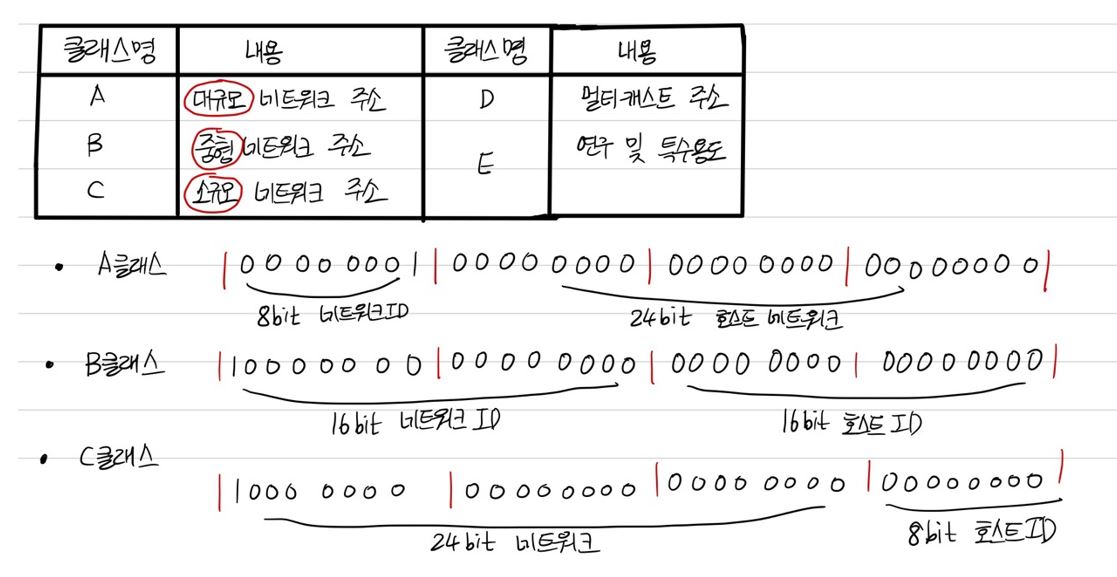 클래스명 내용 클래스명 내용
A 대규모 네트워크 주소 D 멀티캐스트 주소
B 중형 네트워크 주소 E 연구 및 특수용도
C 소규모 네트워크 주소
• A클래스 | 0 0 0 0 0 0 0 1 | 0 0 0 0 0 0 0 0 | 0 0 0 0 0 0 0 0 | 0 0 0 0 0 0 0 0 |
8bit 네트워크ID 24bit 호스트 네트워크
• B클래스 | 1 0 0 0 0 0 0 0 | 0 0 0 0 0 0 0 0 | 0 0 0 0 0 0 0 0 | 0 0 0 0 0 0 0 0 |
16bit 네트워크 ID 16bit 호스트 ID
• C클래스
| 1 0 0 0 0 0 0 0 | 0 0 0 0 0 0 0 0 | 0 0 0 0 0 0 0 0 | 0 0 0 0 0 0 0 0 |
24bit 네트워크 8bit 호스트ID